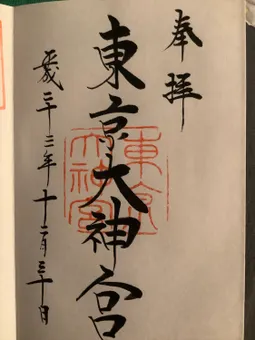 奉拝
東京大神宮
平成二十三年十二月三十日
東京大神宮